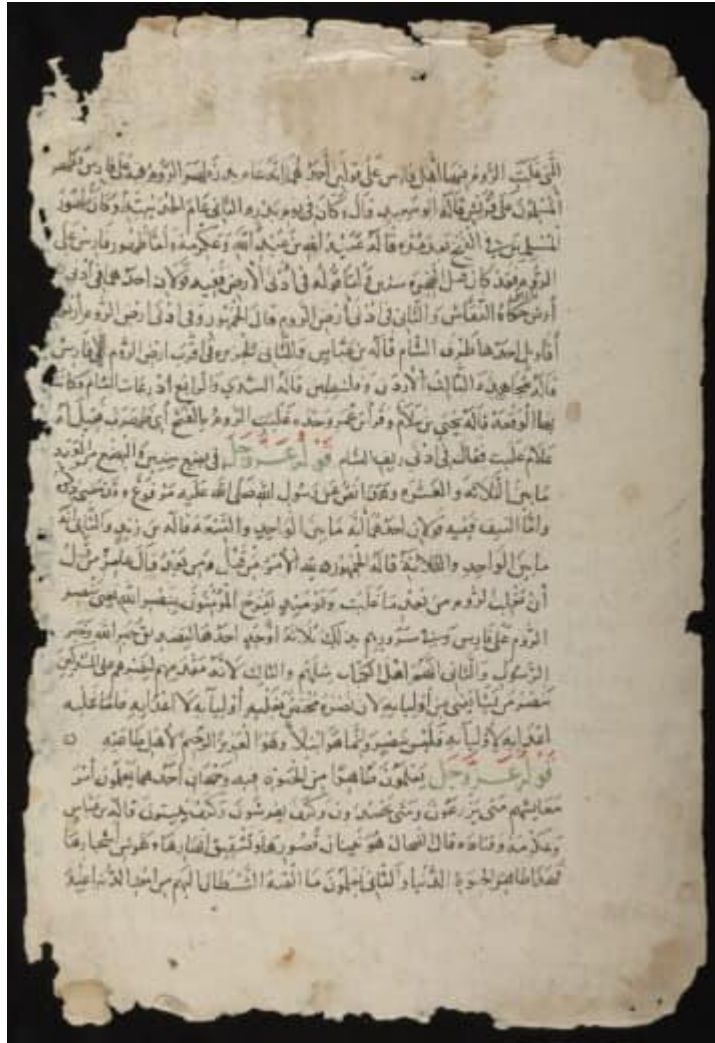 التي غلبت الروم فيها أهل فارس على قولين أحدهما انه عام بدر ظهر الروم فيه على فارس وظهر
المسلمون على قريش قاله ابو سعيد قال وكان في يوم بدر والثاني عام الحديبية وكان ظهور
المسلمين في الفتح بعد مدة قاله عبيد الله بن عبد الله وعكرمة وأما ظهور فارس على
الروم فقد كان قبل الهجرة بسنين فأما قوله في أدنى الأرض ففيه قولان احدهما في أدنى
أرض حكاه النقاش والثاني في أدنى أرض الروم قاله الجمهور وفي أدنى أرض الروم أربعة
أقاويل احدها طرف الشام قاله بن عباس والثاني الجزيرة في اقرب ارض الروم إلى فارس
قاله مجاهد والثالث الأردن وفلسطين قاله السدي والرابع اذرعات الشام وكانت
بها الوقعة قاله يحيى بن سلام وقرأ بن عمر وحده غلبت الروم بالفتح أي ظهرت فقيل له
علام غلبت فقال في أدنى ريف الشام قوله عز وجل في بضع سنين والبضع من العدد
ما بين الثلاثة والعشرة وهذا نص عن رسول الله صلى الله عليه مرفوع
وأما النيف ففيه قولان احدهما أنه ما بين الواحد والتسعة قاله بن زيد والثاني أنه
ما بين الواحد والثلاثة قاله الجمهور لله الأمر من قبل ومن بعد قال عامر من قبل
أن تغلب الروم من بعد ما غلبت ويومئذ يفرح المؤمنون بنصر الله يعني بنصر
الروم على فارس وفي سرورهم بذلك ثلاثة أوجه احدها لتصديق خبر الله وخبر
الرسول والثاني لأنهم أهل الكتاب مثلهم والثالث لأنه مقدمة لنصرهم على المشركين
ينصر من يشاء يعني من أوليائه لأن نصره مختص بغلبة أوليائه لأعدائه فاما غلبة
أعدائه لأوليائه فليس بنصر وانما هو ابتلاء وهو العزيز الرحيم لأهل طاعته
قوله عز وجل يعلمون ظاهرا من الحيوة فيه وجهان أحدهما يعلمون أمر
معايشهم متى يزرعون ومتى يحصدون وكيف يغرسون وكيف يبنون قاله بن عباس
وعكرمة وقتادة قال الضحاك هو بنيان قصورها وتشقيق انهارها وغرس اشجارها
فهذا ظاهر الحيوة الدنيا والثاني يعلمون ما القته الشياطين اليهم من امور الدنيا عند